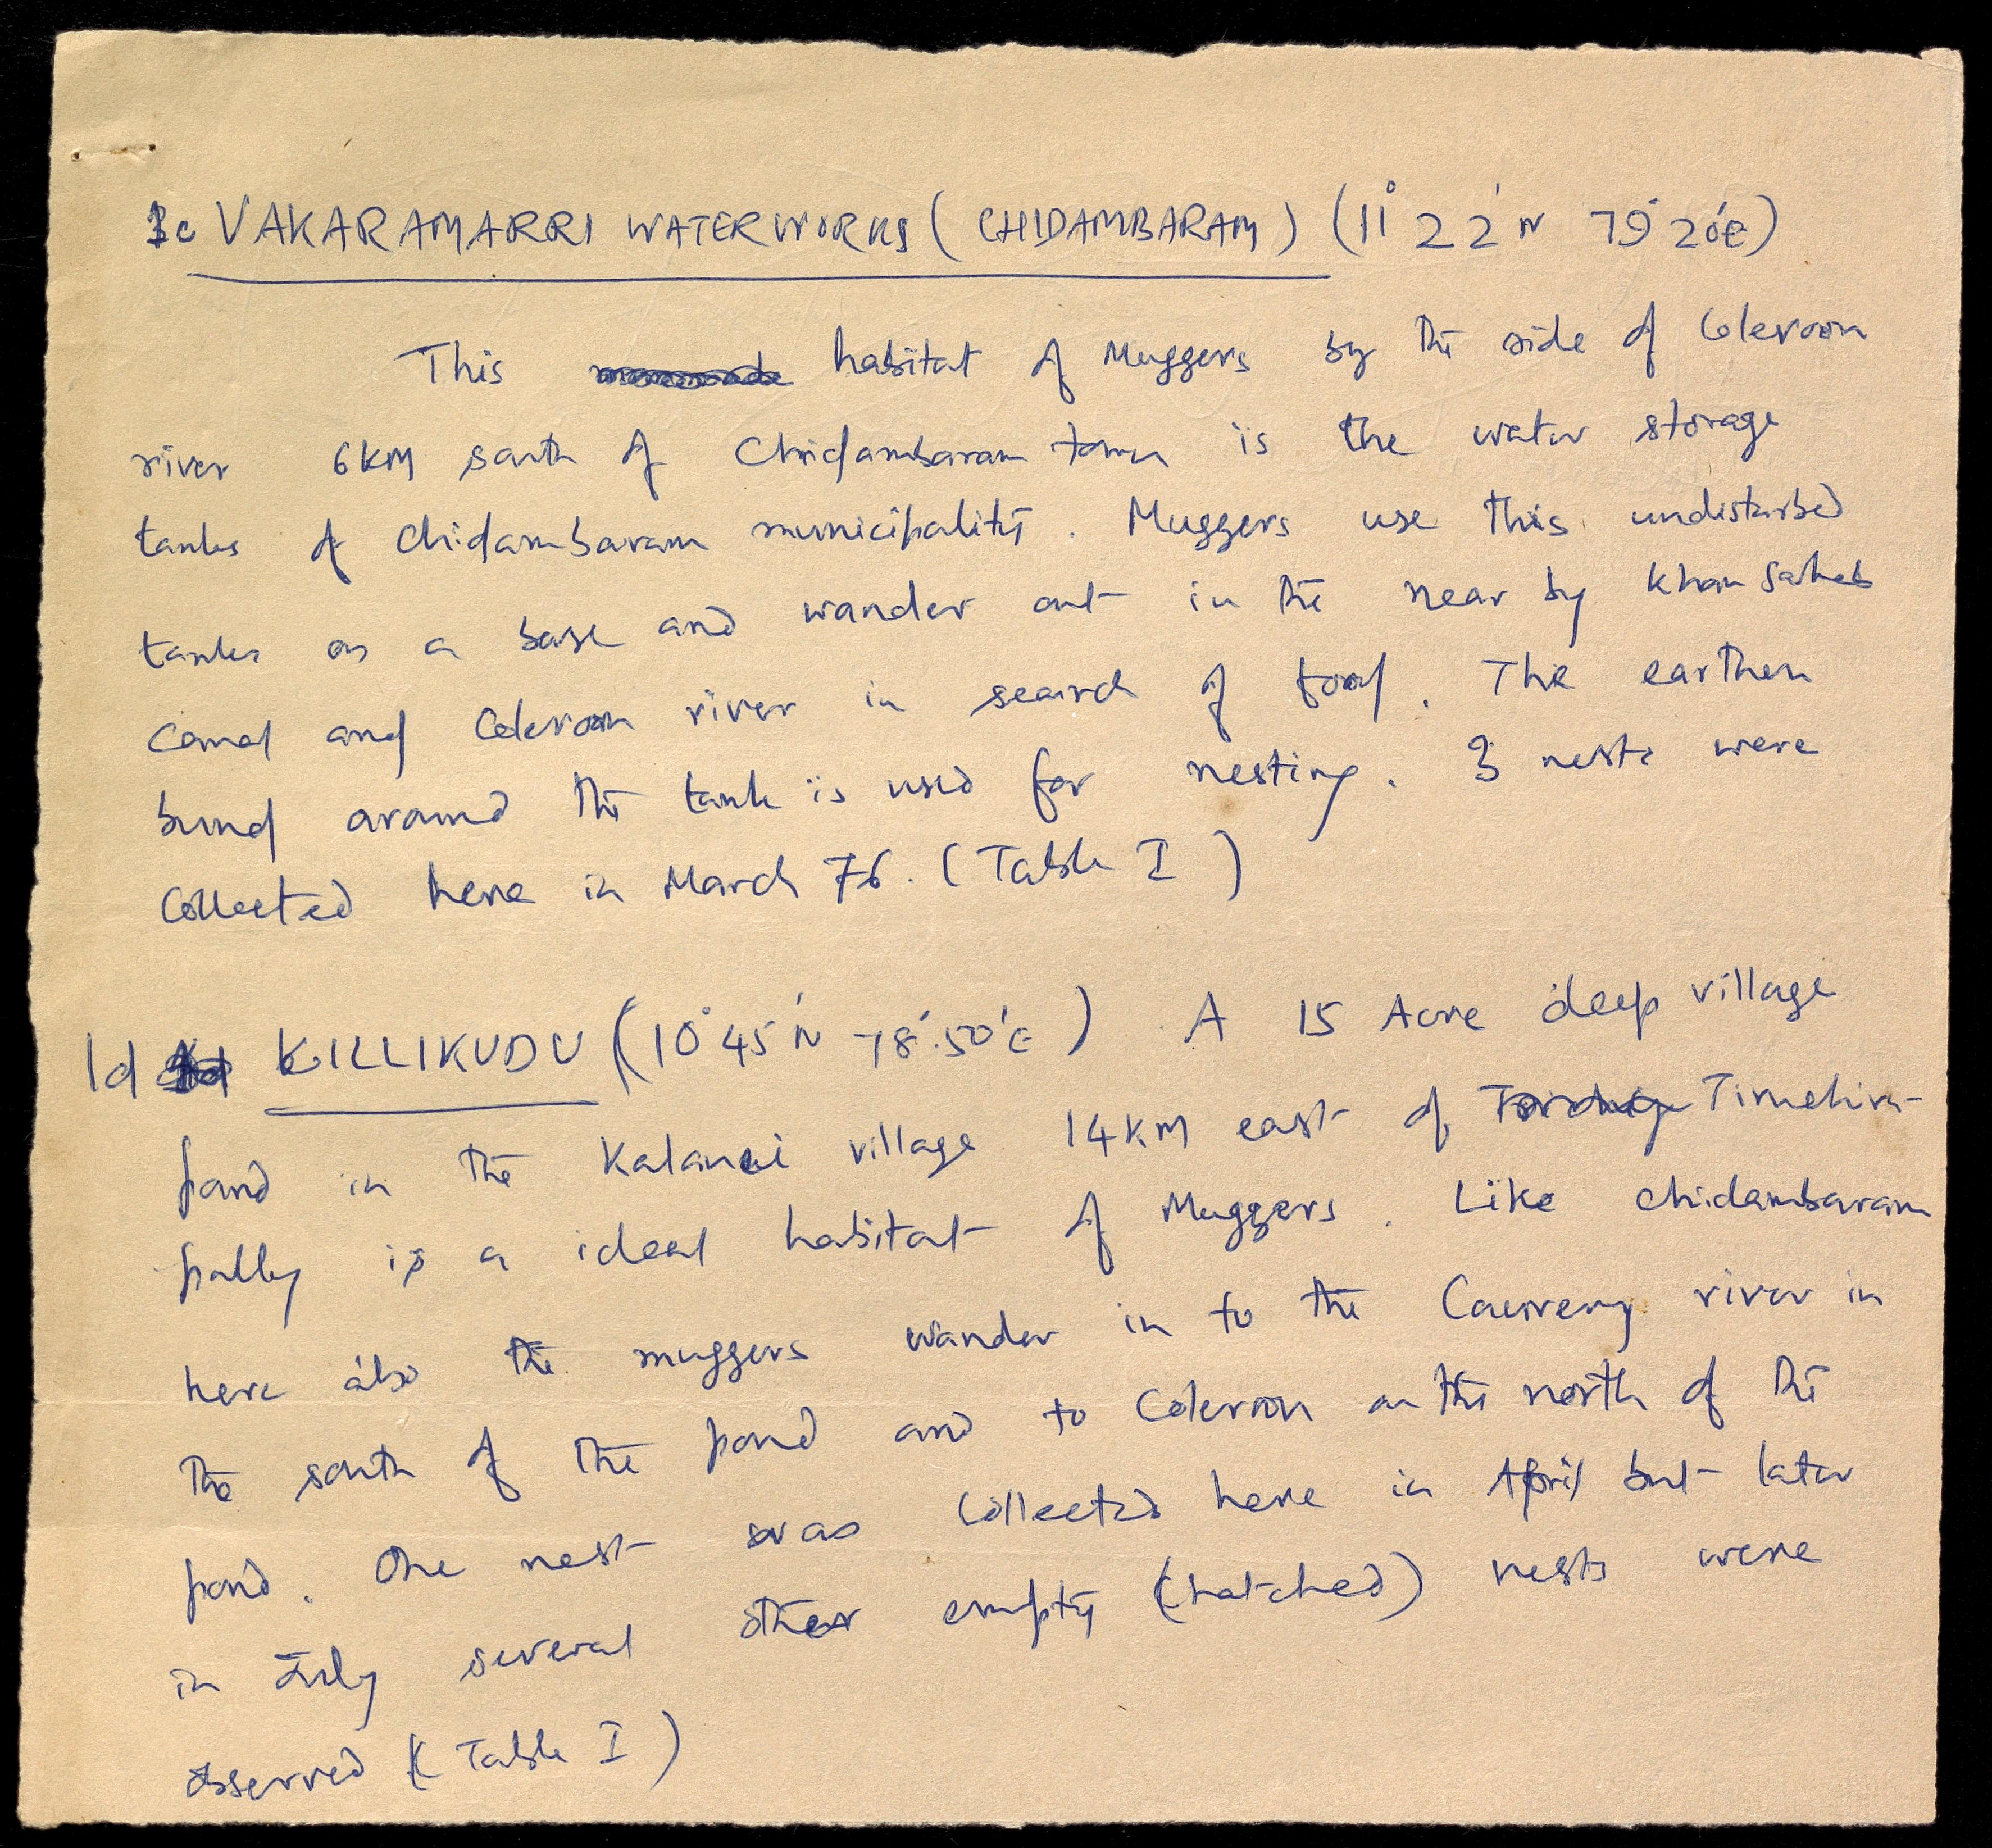 1c VAKARAMARRI WATERWORKS (CHIDAMBARAM) (11° 22' N 79° 20'E)
This habitat of Muggers by the side of Coleroon
river 6KM south of Chidambaram town is the water storage
tanks of Chidambaram municipality. Muggers use this undisturbed
tanks as a base and wander out in the near by Khan Saheb
Canal and Coleroon river in search of food. The earthen
bund around the tank is used for nesting. 3 nests were
Collected here in March 76. (Table I)
1d KILLIKUDU (10° 45' N 78°.50'E) A 15 Acre deep village
pond in the Kalanei village 14KM east of Tiruchira-
pally is a ideal habitat of Muggers. Like Chidambaram
here also the muggers wander in to the Cauvery river in
the south of the pond and to Coleroon on the north of the
pond. One nest was Collected here in April but later
in July several other empty (hatched) nests were
observed (Table I)